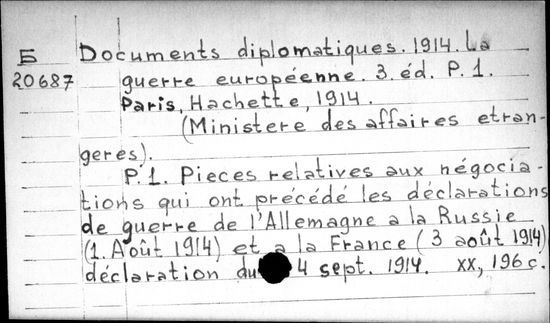 Б Documents diplomatiques. 1914. La
20687 guerre européenne. 3. éd. P. 1.
Paris, Hachette, 1914.
(Ministere des affaires etran-
geres).
P. 1. Pieces relatives aux négocia-
tions qui ont précédé les déclarations
de guerre de l'Allemagne a la Russie
(1. Août 1914) et a la France (3 août 1914)
déclaration du 4 sept. 1914. XX, 196 с.